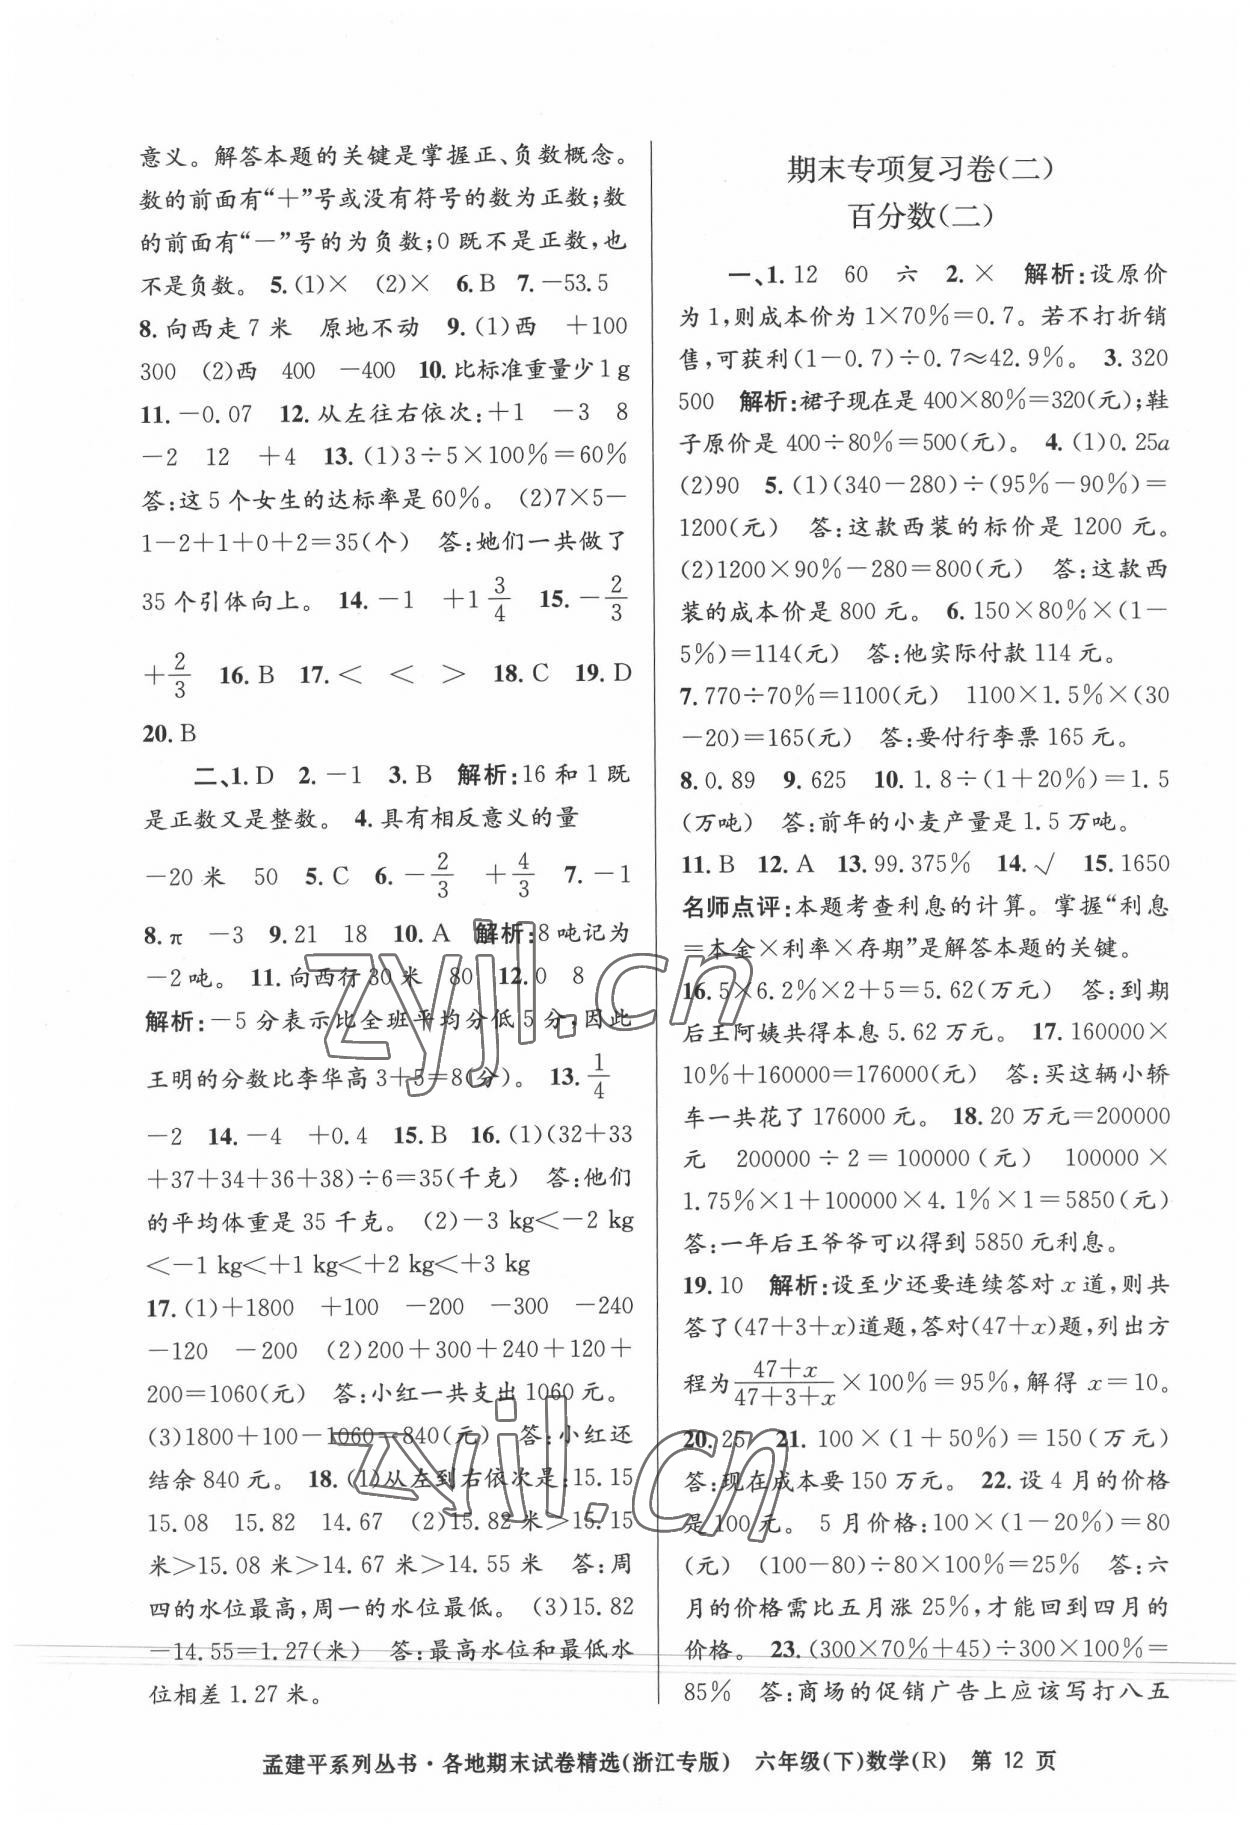 意义。解答本题的关键是掌握正、负数概念。
数的前面有“＋”号或没有符号的数为正数;数
的前面有“－”号的为负数;0既不是正数,也
不是负数。 5.(1)× (2)× 6.B 7.－53.5
8.向西走7米 原地不动 9.(1)西 ＋100
300 (2)西 400 －400 10.比标准重量少1g
11.－0.07 12.从左往右依次:＋1 －3 8
－2 12 ＋4 13.(1)3÷5×100%＝60%
答:这5个女生的达标率是60%。 (2)7×5－
1－2＋1＋0＋2＝35(个) 答:她们一共做了
35个引体向上。 14.－1 ＋1 3/4 15.－2/3
＋2/3 16.B 17.＜ ＜ ＞ 18.C 19.D
20.B
二、1.D 2.－1 3.B 解析:16和1既
是正数又是整数。 4.具有相反意义的量
－20米 50 5.C 6.－2/3 ＋4/3 7.－1
8.π －3 9.21 18 10.A 解析:8吨记为
－2吨。 11.向西行30米 80 12.0 8
解析:－5分表示比全班平均分低5分,因此
王明的分数比李华高3＋5＝8(分)。 13.1/4
－2 14.－4 ＋0.4 15.B 16.(1)(32＋33
＋37＋34＋36＋38)÷6＝35(千克) 答:他们
的平均体重是35千克。 (2)－3 kg＜－2 kg
＜－1 kg＜＋1 kg＜＋2 kg＜＋3 kg
17.(1)＋1800 ＋100 －200 －300 －240
－120 －200 (2)200＋300＋240＋120＋
200＝1060(元) 答:小红一共支出1060元。
(3)1800＋100－1060＝840(元) 答:小红还
结余840元。 18.(1)从左到右依次是:15.15
15.08 15.82 14.67 (2)15.82米＞15.15
米＞15.08米＞14.67米＞14.55米 答:周
四的水位最高,周一的水位最低。 (3)15.82
－14.55＝1.27(米) 答:最高水位和最低水
位相差1.27米。
期末专项复习卷(二)
百分数(二)
一、1.12 60 六 2.× 解析:设原价
为1,则成本价为1×70%＝0.7。若不打折销
售,可获利(1－0.7)÷0.7≈42.9%。 3.320
500 解析:裙子现在是400×80%＝320(元);鞋
子原价是400÷80%＝500(元)。 4.(1)0.25a
(2)90 5.(1)(340－280)÷(95%－90%)＝
1200(元) 答:这款西装的标价是1200元。
(2)1200×90%－280＝800(元) 答:这款西
装的成本价是800元。 6.150×80%×(1－
5%)＝114(元) 答:他实际付款114元。
7.770÷70%＝1100(元) 1100×1.5%×(30
－20)＝165(元) 答:要付行李票165元。
8.0.89 9.625 10.1.8÷(1＋20%)＝1.5
(万吨) 答:前年的小麦产量是1.5万吨。
11.B 12.A 13.99.375% 14.√ 15.1650
名师点评:本题考查利息的计算。掌握“利息
＝本金×利率×存期”是解答本题的关键。
16.5×6.2%×2＋5＝5.62(万元) 答:到期
后王阿姨共得本息5.62万元。 17.160000×
10%＋160000＝176000(元) 答:买这辆小轿
车一共花了176000元。 18.20万元＝200000
元 200000÷2＝100000(元) 100000×
1.75%×1＋100000×4.1%×1＝5850(元)
答:一年后王爷爷可以得到5850元利息。
19.10 解析:设至少还要连续答对x道,则共
答了(47＋3＋x)道题,答对(47＋x)题,列出方
程为(47＋x)/(47＋3＋x)×100%＝95%,解得x＝10。
20.25 21.100×(1＋50%)＝150(万元)
答:现在成本要150万元。 22.设4月的价格
是100元。 5月价格:100×(1－20%)＝80
(元) (100－80)÷80×100%＝25% 答:六
月的价格需比五月涨25%,才能回到四月的
价格。 23.(300×70%＋45)÷300×100%＝
85% 答:商场的促销广告上应该写打八五
孟建平系列丛书·各地期末试卷精选(浙江专版) 六年级(下)数学(R) 第12页
zyjl.cn
zyjl.cn